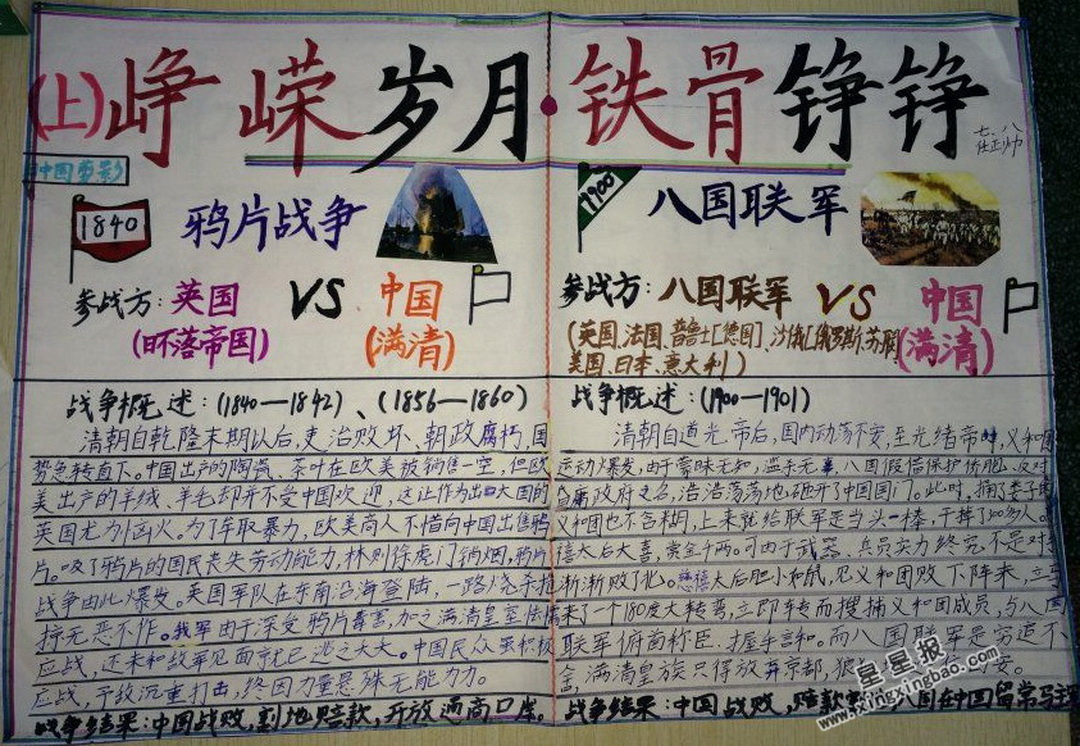 (上)峥嵘岁月 铁骨铮铮
七、八
任正帅
中国剪影
1840
鸦片战争
参战方:英国 VS 中国
(日不落帝国) (满清)
战争概述:(1840—1842)、(1856—1860)
清朝自乾隆末期以后,吏治败坏、朝政腐朽,国
势急转直下。中国出产的陶瓷、茶叶在欧美被销售一空,但欧
美出产的羊绒、羊毛却并不受中国欢迎,这让作为出口大国的
英国尤为恼火。为了牟取暴力,欧美商人不惜向中国出售鸦
片。吸了鸦片的国民丧失劳动能力,林则徐虎门销烟,鸦片
战争由此爆发。英国军队在东南沿海登陆,一路烧杀抢
掠无恶不作。我军由于深受鸦片毒害,加之满清皇室怯懦
应战,还未和敌军见面就已逃之大大。中国民众虽积极
应战,予敌沉重打击,终因力量悬殊无能力力。
战争结果:中国战败,割地赔款,开放通商口岸。
1900
八国联军
参战方:八国联军 VS 中国
(英国、法国、普鲁士[德国]、沙俄[俄罗斯、苏联 (满清)
美国、日本、意大利)
战争概述:(1900—1901)
清朝自道光帝后,国内动荡不安,至光绪帝时,义和团
运动爆发,由于蒙昧无知,滥杀无辜,八国假借保护侨胞、反对
腐政府之名,浩浩荡荡地砸开了中国国门。此时,捅了娄子的
义和团也不含糊,上来就给联军是当头一棒,干掉了300多人。
禧太后大喜,赏金千两。可由于武器、兵员实力终究不是对
渐渐败了北。慈禧太后胆小如鼠,见义和团败下阵来,立马
来了一个180度大转弯,立即转而搜捕义和团成员,与八国
联军俯首称臣、握手言和。而八国联军是穷追不
舍,满清皇族只得放弃京都,狼
战争结果:中国战败,赔款 八国在中国留常马
皇星报
www.xingxingbao.com